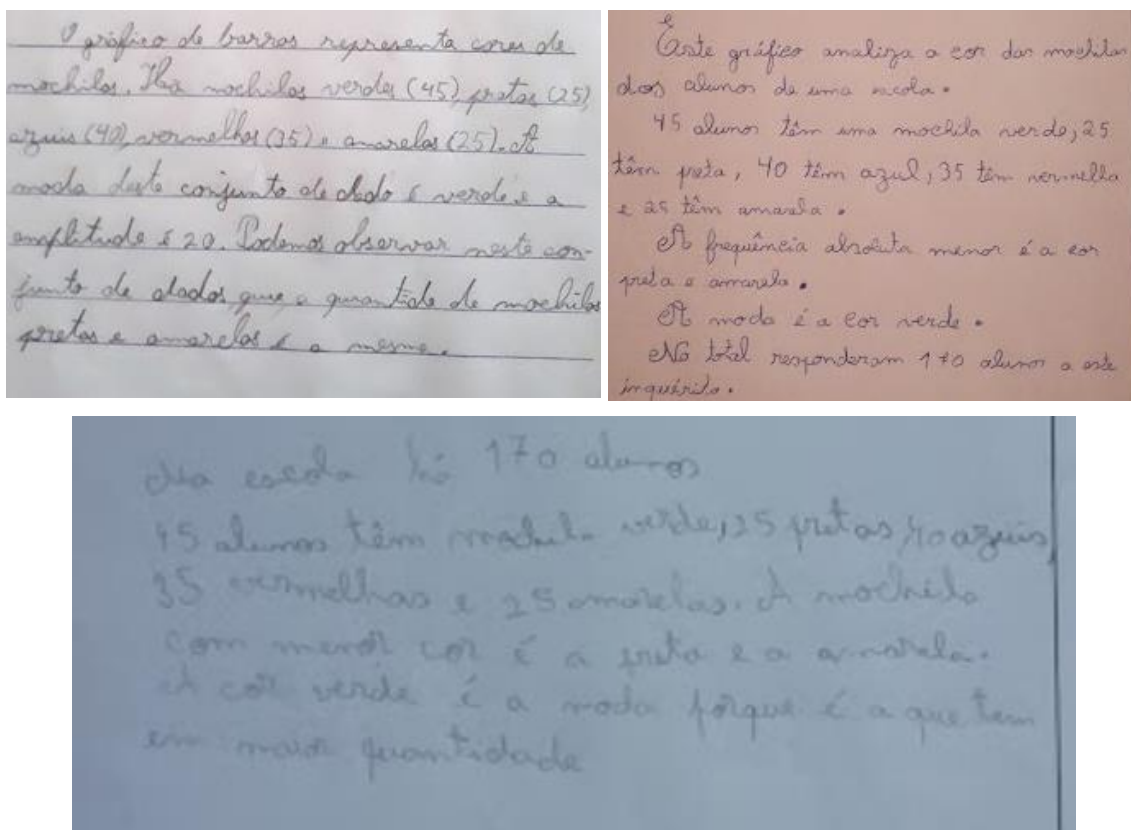 O gráfico de barras representa cores de
mochilas. Há mochilas verdes (45), pretas (25),
azuis (40), vermelhas (35) e amarelas (25). A
moda deste conjunto de dado é verde e a
amplitude é 20. Podemos observar neste con-
junto de dados, que a quantide de mochilas
pretas e amarelas é a mesma.
Este gráfico analiza a cor das mochilas
dos alunos de uma escola.
45 alunos têm uma mochila verde, 25
têm preta, 40 têm azul, 35 têm vermelha
e 25 têm amarela.
A frequência absoluta menor é a cor
preta e amarela.
A moda é a cor verde.
No total responderam 170 alunos a este
inquérito.
Na escola há 170 alunos
45 alunos têm mochila verde, 25 pretas, 40 azuis,
35 vermelhas e 25 amarelas. A mochila
com menor cor é a preta e a amarela.
A cor verde é a moda porque é a que tem
em maior quantidade